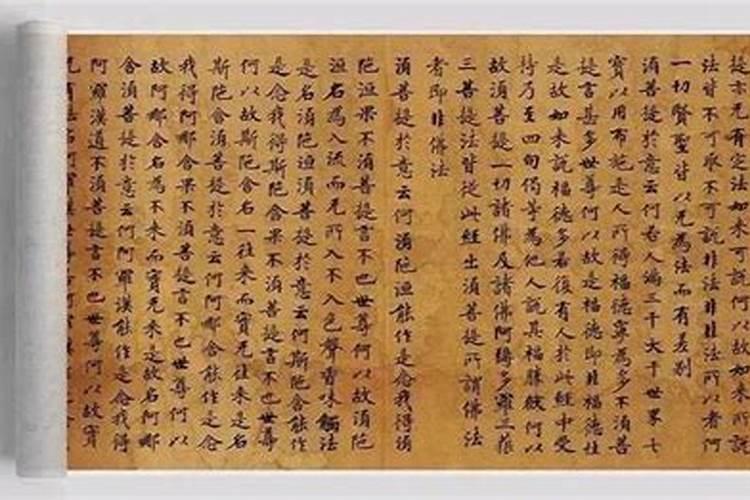 提言无有定法如来可說何以故如来所說
法皆不可取不可說非法非非法所以者何
一切賢聖皆以无為法而有差別
須菩提於意云何若人滿三千大千世界七
寶以用布施是人所得福德寧為多不須菩
提言甚多世尊何以故是福德即非福德性
是故如来說福德多若復有人於此經中受
持乃至四句偈等為他人說其福勝彼何以
故須菩提一切諸佛及諸佛阿耨多羅三藐
三菩提法皆從此經出須菩提所謂佛法
者即非佛法
須菩提於意云何須陀洹能作是念我得須
陀洹果不須菩提言不也世尊何以故須陀
洹名為入流而无所入不入色聲香味觸法
是名須陀洹須菩提於意云何斯陀含能作
是念我得斯陀含果不須菩提言不也世尊
何以故斯陀含名一往来而實无往来是名
斯陀含須菩提於意云何阿那含能作是念
我得阿那含果不須菩提言不也世尊何以
故阿那含名為不来而實无来是故名阿那
含須菩提於意云何阿羅漢能作是念我得
阿羅漢道不須菩提言不也世尊何以故實